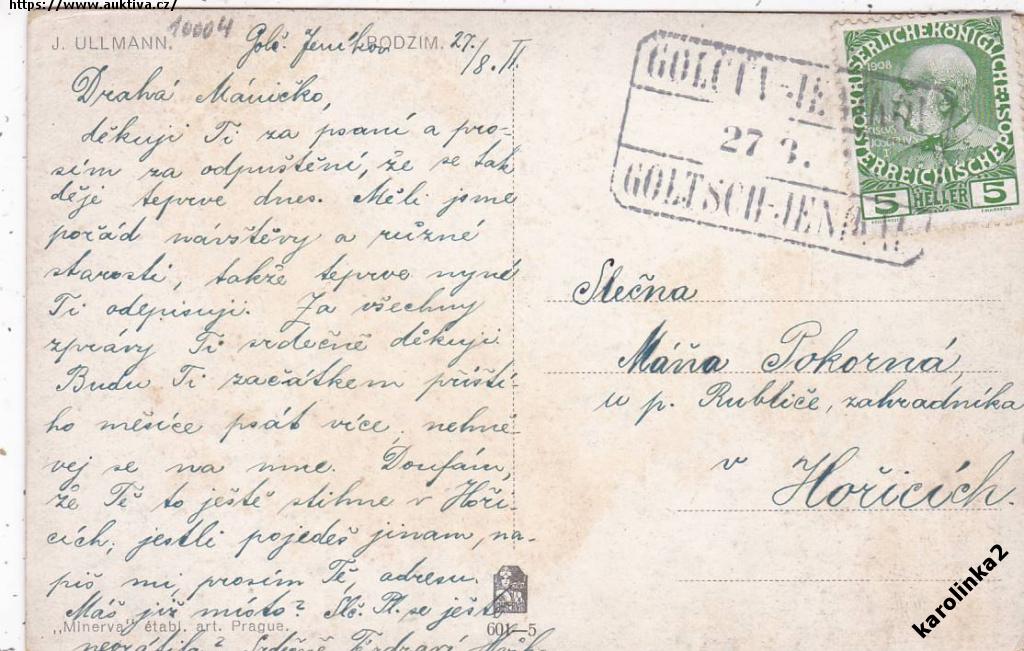 https://www.auktiva.cz/
10004
J. ULLMANN.
PODZIM.
Golč. Jeníkov 27./8. II.
Drahá Máničko,
děkuji Ti za psaní a pro-
sím za odpuštění, že se tak
děje teprve dnes. Měli jsme
pořád návštěvy a různé
starosti, takže teprve nyné
Ti odepisuji. Za všechny
zprávy Ti srdečně děkuji.
Budu Ti začátkem příští-
ho měsíce psát více, nehně-
vej se na mne. Doufám,
že Tě to ještě stihne v Hoři-
cích; jestli pojedeš jinam, na-
piš mi, prosím Tě, adresu.
Máš již místo? Slč. Pl. se ještě
nevrátila? Srdečně Tě zdraví
„Minerva" établ. art. Prague.
601—5
GOLČŮV-JENÍKOV
27 3.
GOLTSCH-JENIKAU
KAISERLICHE KÖNIGLICHE
ÖSTERREICHISCHE POST
1908
5 HELLER 5
Slečna
Máňa Pokorná,
u p. Rubliče, zahradníka
v
Hořicích.
karolinka2